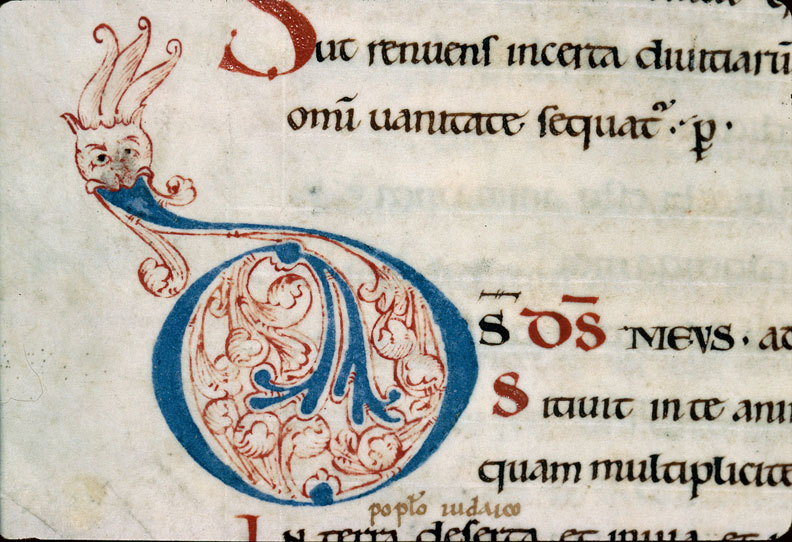 Sut renuens incerta diuitiarū
omī uanitate sequat᷑ · p̲ ·
D S̄ D̄S̄ MEVS · ad
Sitiuit in te ani
quam multiplicite
popłō iudaico
In terra deserta et inuia et i